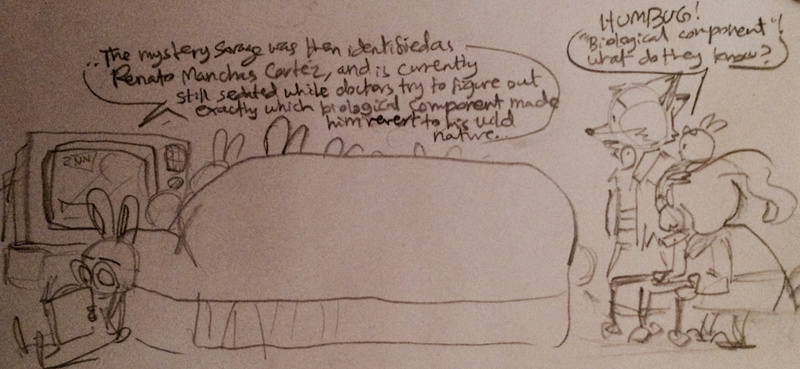 ..The mystery Savage was then identified as
Renato Manchas Cortez, and is currently
still sedated while doctors try to figure out
exactly which biological component made
him revert to his wild
nature...
ZNN
HUMBUG!
"Biological component"!
what do they know?